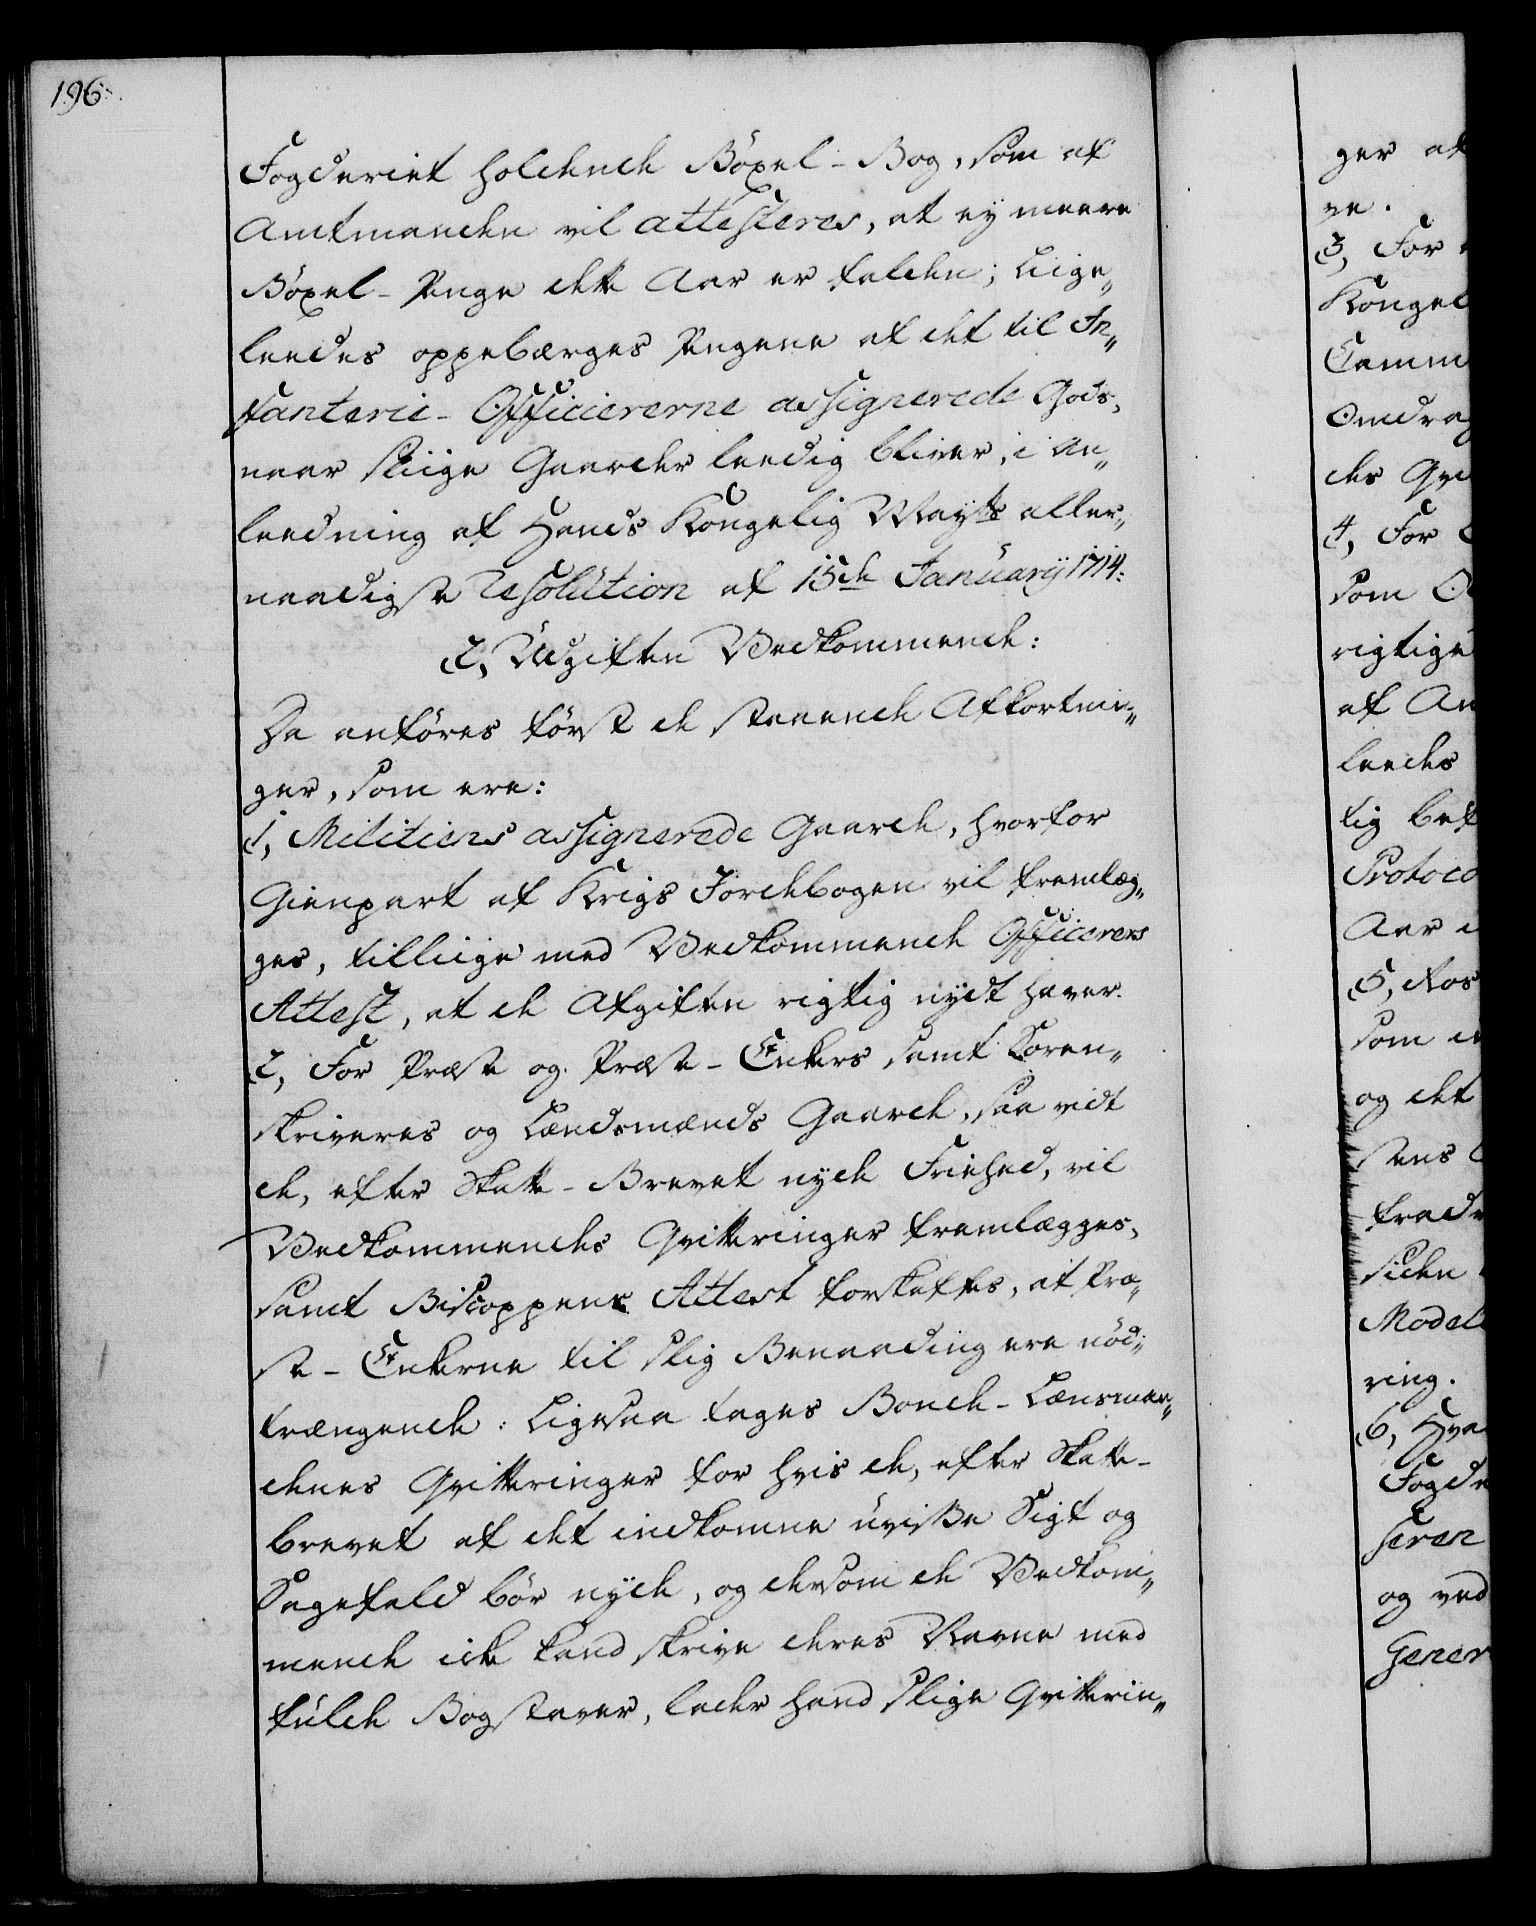 196.
Fogderiet holdende Böxel-Bog, som af
Amtmanden vil attesteres, at ey meere
Böxel-Penge dette Aar er falden; Liige„
leedes oppebærges Pengene af det til In„
fanterie-Officiererne assignerede Gods,
naar sliige Gaarder leedig bliver, i an„
leedning af Hands Kongelig Mayts aller„
naadigste Resolution af 15de Januarÿ 1714:
2, Udgiften Vedkommende:
Da anföres först de staaende Afkortnin„
ger, som ere:
1, Militiens assignerede Gaarde, hvorfor
Gienpart af Krigs Jordebogen vil fremlæg„
ges, tilliige med Vedkommende Officerers
Attest, at de Afgiften rigtig nydt haver.
2, For Præste og Præste-Enkers samt Soren„
skriveres og Lændsmænds Gaarde, saa vidt
de, efter Skatte-Brevet nyde Friehed, vil
Vedkommendes Qvitteringer fremlægges,
samt Biscoppens Attest forskaffes, at Præ„
ste-Enkerne til slig Benaading ere nöd„
trængende: Ligesaa tages Bonde-Lænsmæn„
denes Qvitteringer for hvis de, efter Skatte-
brevet af det indkomne uvisse Sigt og
Sagefald bör nyde, og dersom de Vedkom„
mende icke kand skrive deres Navne med
fulde Bogstaver, lader hand slige Qvitterin„
ger at
ve.
3, For
Kongel
Camm
Omdrag
des Qvi
4, For
som O
rigtige
af Am
leedes
tig bek
Protoco
Aar i
5, Ros
som i
og det
stens
fradr
siden
Model
ring.
6, Hva
Fogde
seren
og ved
Gener